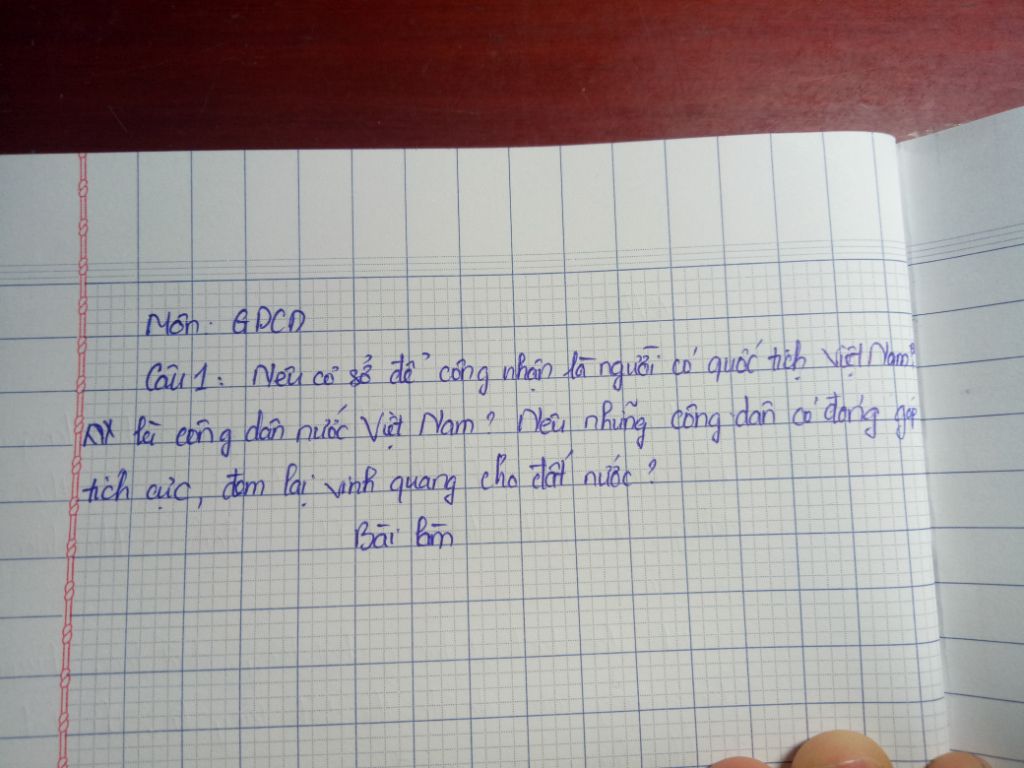 Môn: GDCD
Câu 1: Nêu cơ sở để công nhận là người có quốc tịch Việt Nam?
là công dân nước Việt Nam? Nêu những công dân có đóng góp
tích cực, đem lại vinh quang cho đất nước?
Bài làm